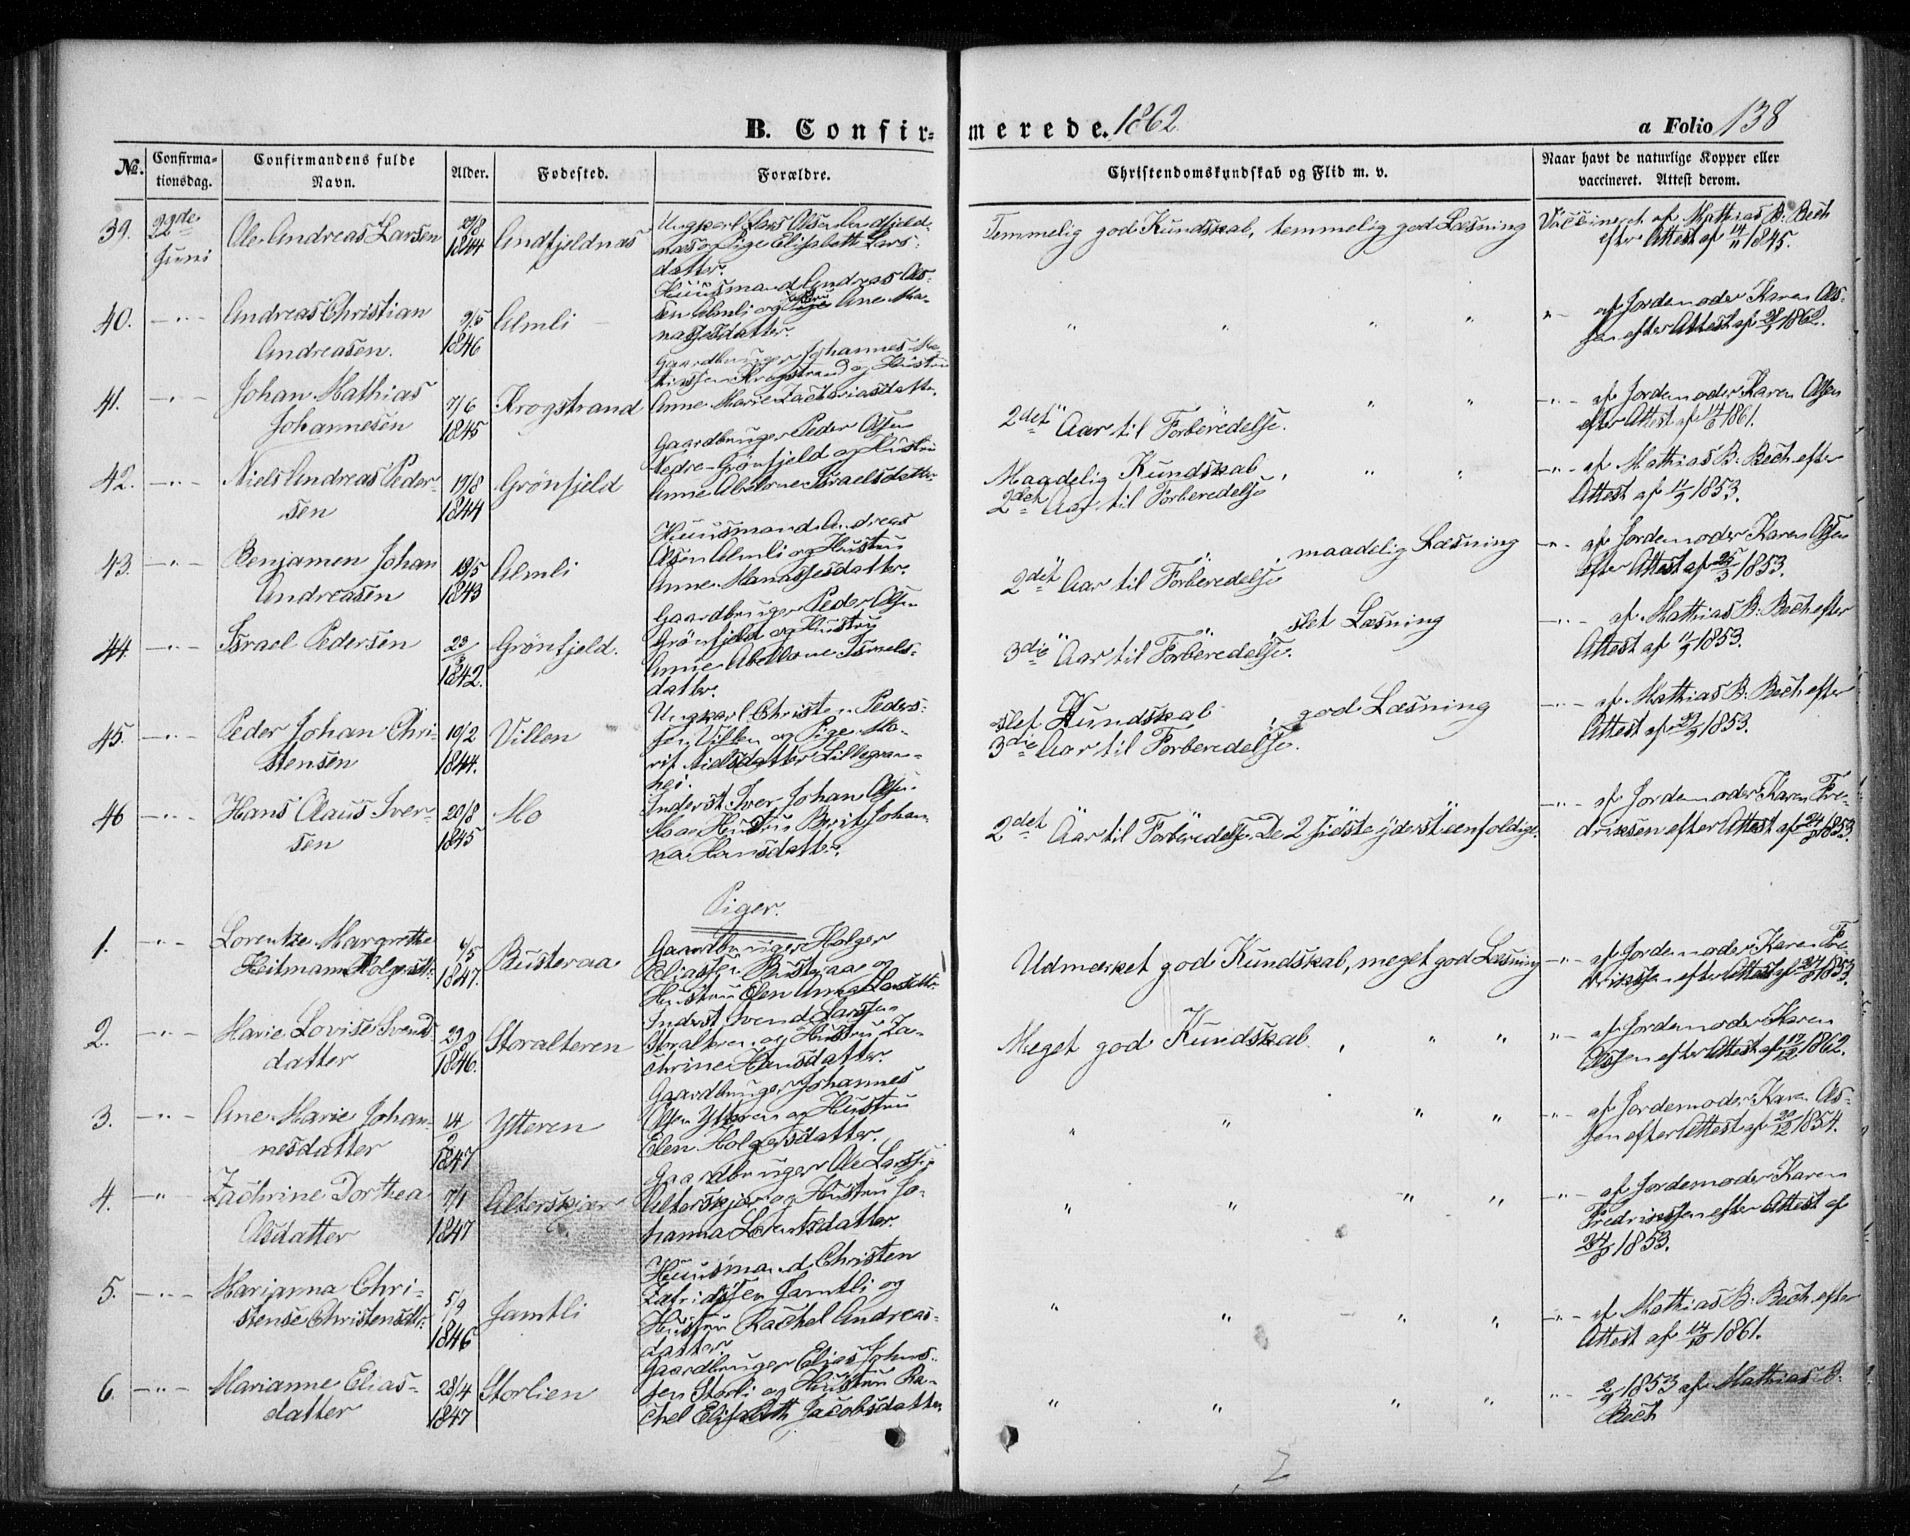 B. Confir-
merede. 1862.
a Folio 138
No.
Confirma-
tionsdag.
Confirmandens fulde
Navn.
Alder.
Fødested.
Forældre.
Christendomskundskab og Flid m. v.
Naar havt de naturlige Kopper eller
vaccineret. Attest derom.
39. 22de Juni
Ole Andreas Larsen
1844
Andfjeldnæs
Ungkarl Lars Olsen Andfjeld-
næs og Pige Elisabeth Lars-
datter.
Temmelig god Kundskab, temmelig god Læsning
Vaccineret af Mathias B. Bech
efter Attest af 14/11 1845.
40. -"-
Andreas Christian
Andreasen.
9/5
1846
Almli
Huusmand Andreas Ol-
sen Almli og Ane Ma-
nassesdatter.
" " " "
"- af Jordemoder Karen Ol-
sen efter Attest af 1862.
41. -"-
Johan Mathias
Johannesen
7/6
1845
Krogstrand
Gaardbruger Johannes Ma-
thiassen Krogstrand og Hustru
Anne Marie Zachariasdatter.
2det Aar til Forberedelse. " "
-"- af Jordemoder Karen Olsen
efter Attest af 1861.
42. -"-
Niels Andreas Peder-
sen
19/8
1844
Grönfjeld
Gaardbruger Peder Olsen
Nedre-Grönfjeld og Hustru
Anne Abelone Israelsdatter.
Maadelig Kundskab, " "
2det Aar til Forberedelse
-"- af Mathias B. Bech efter
Attest af 1853.
43. -"-
Benjamen Johan
Andreasen
19/5
1843
Almli
Huusmand Andreas
Olsen Almli og Hustru
Anne Manassesdatter.
2det Aar til Forberedelse, maadelig Læsning
-"- af Jordemoder Karen Olsen
efter Attest af 25/3 1853.
44. -"-
Israel Pedersen
1842.
Grönfjeld.
Gaardbruger Peder Olsen
Grönfjeld og Hustru
Anne Abellone Israels-
datter.
3die Aar til Forberedelse. slet Læsning
-"- af Mathias B. Bech efter
Attest af 1853.
45. -"-
Peder Johan Chri-
stensen
19/2
1844.
Villen
Ungkarl Christen Peders-
sen Villen og Pige Ma-
rit Nielsdatter Lillegran-
hei.
slet Kundskab, god Læsning
3die Aar til Forberedelse.
-"- af Mathias B. Bech efter
Attest af 1853.
46 -"-
Hans Olaus Iver-
sen
20/8
1845
Mo
Inderst Iver Johan Olsen
Mo og Hustru Berit Johan-
na Hansdatter.
2det Aar til Forberedelse. De 2 sidste yderst eenfoldige.
-"- af Jordemoder Karen Fre-
driksen efter Attest af 1853.
Piger.
1. -"-
Lorentze Margrethe
Heitmann Holgersdt.
6/5
1847.
Busteraa
Gaardbruger Holger
Eliassen Busteraa og
Hustru Elen Anna Larsdtr.
Udmærket god Kundskab, meget god Læsning
-"- af Jordemoder Karen Fre-
driksen efter Attest af 1853.
2. -"-
Marie Lovise Svends-
datter
29/8
1846.
Storalteren
Inderst Svend Larssen
Storalteren og Hustru Za-
chrine Hansdatter.
Meget god Kundskab, " "
"- af Jordemoder Karen
Olsen efter Attest af 1862.
3. -"-
Ane Marie Johan-
nesdatter
14/2
1847
Ytteren
Gaardbruger Johannes
Olsen Ytteren og Hustru
Elen Holgersdatter.
" " " "
"- af Jordemoder Karen Ol-
sen efter Attest af 20/12 1854.
4. -"-
Zachrine Dorthea
Olsdatter
7/1
1847
Alterskjær
Gaardbruger Ole Larssen
Alterskjær og Hustru Jo-
hanna Lorentsdatter.
" " " "
"- af Jordemoder Karen
Fredrikssen efter Attest af
1853.
5. -"-
Marianna Chri-
stense Christensdtr.
5/9
1846
Jamtli
Huusmand Christen
Zakridssen Jamtli og
Hustru Rachel Andreas-
datter.
" " " "
-"- af Mathias B. Bech efter
Attest af 14/10 1861.
6. -"-
Marianne Elias-
datter
28/4
1847
Storlien
Gaardbruger Elias Johns-
sen Storli og Hustru Ra-
chel Elisabeth Jacobsdatter
" " " "
"- 1853 af Mathias B.
Bech